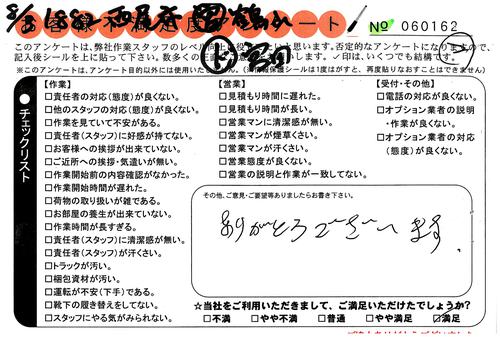 お客様不満足度アンケート
№ 060162
このアンケートは、弊社作業スタッフのレベル向上に役立てたいと思います。否定的なアンケートになりますので、
記入後シールを上に貼って下さい。✓印は、いくつでも結構です。
※このアンケートは、アンケート目的以外には使用いたしません。
チェックリスト
【作業】
□責任者の対応(態度)が良くない。
□他のスタッフの対応(態度)が良くない。
□作業を見ていて不安がある。
□責任者(スタッフ)に好感が持てない。
□お客様への挨拶が出来ていない。
□ご近所への挨拶・気遣いが無い。
□作業開始前の内容確認がなかった。
□作業開始時間が遅れた。
□荷物の取り扱いが雑である。
□お部屋の養生が出来ていない。
□作業時間が長すぎる。
□責任者(スタッフ)に清潔感が無い。
□責任者(スタッフ)が汗くさい。
□トラックが汚い。
□梱包資材が汚い。
□運転が不安(下手)である。
□靴下の履き替えをしてない。
□スタッフにやる気がみられない。
【営業】
□見積もり時間に遅れた。
□見積もり時間が長い。
□営業マンに清潔感が無い。
□営業マンが煙草くさい。
□営業マンが汗くさい。
□営業態度が良くない。
□営業の説明と作業が一致してない。
【受付・その他】
□電話の対応が良くない。
□オプション業者の説明
・作業が良くない。
□オプション業者の対応
(態度)が良くない。
その他、ご意見・ご要望等ありましたらお書き下さい。
ありがとうございます
☆当社をご利用いただきまして、ご満足いただけたでしょうか?
□不満 □やや不満 □普通 □やや満足 ☑満足